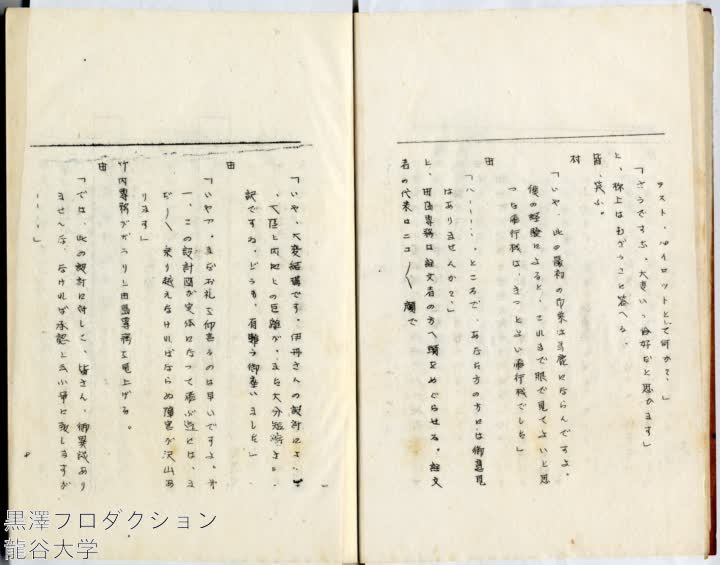 テスト、パイロットとして何かで?、」
「さうですね、大変いゝ恰好だと思ひます」
と、村上はむぞうさに答へる。
皆、笑ふ。
村
「いや、此の最初の印象は馬鹿にならんですよ。
僕の経験によると、これまで眼で見てよいと思
つた飛行機は、きつとよい飛行機でした」
田
「ハ・・・・、ところで、あなた方の方には御意見
はありませんか?、」
と、田島専務は註文者の方へ頭をめぐらせる。註文
者の代表はニコ〳〵顔で
「いや、大変結構です。伊丹さんの設計によ
、大陸と内地との距離が、また大分短縮
訳ですね、どうも、有難う御座いました」
田
「いや〳〵。まだお礼を仰言るのは早いですよ。才
一、この設計図が実体になつて飛ぶ迄には、ま
だ〳〵乗り越えなければならぬ障害が沢山あ
ります」
竹内専務がヂラリと田島専務を見上げる。
田
「では、此の設計に対して、皆さん、御異議あり
ませんな、なければ承認と云ふ事に致しますが
・・・・」
黒澤プロダクション
龍谷大学